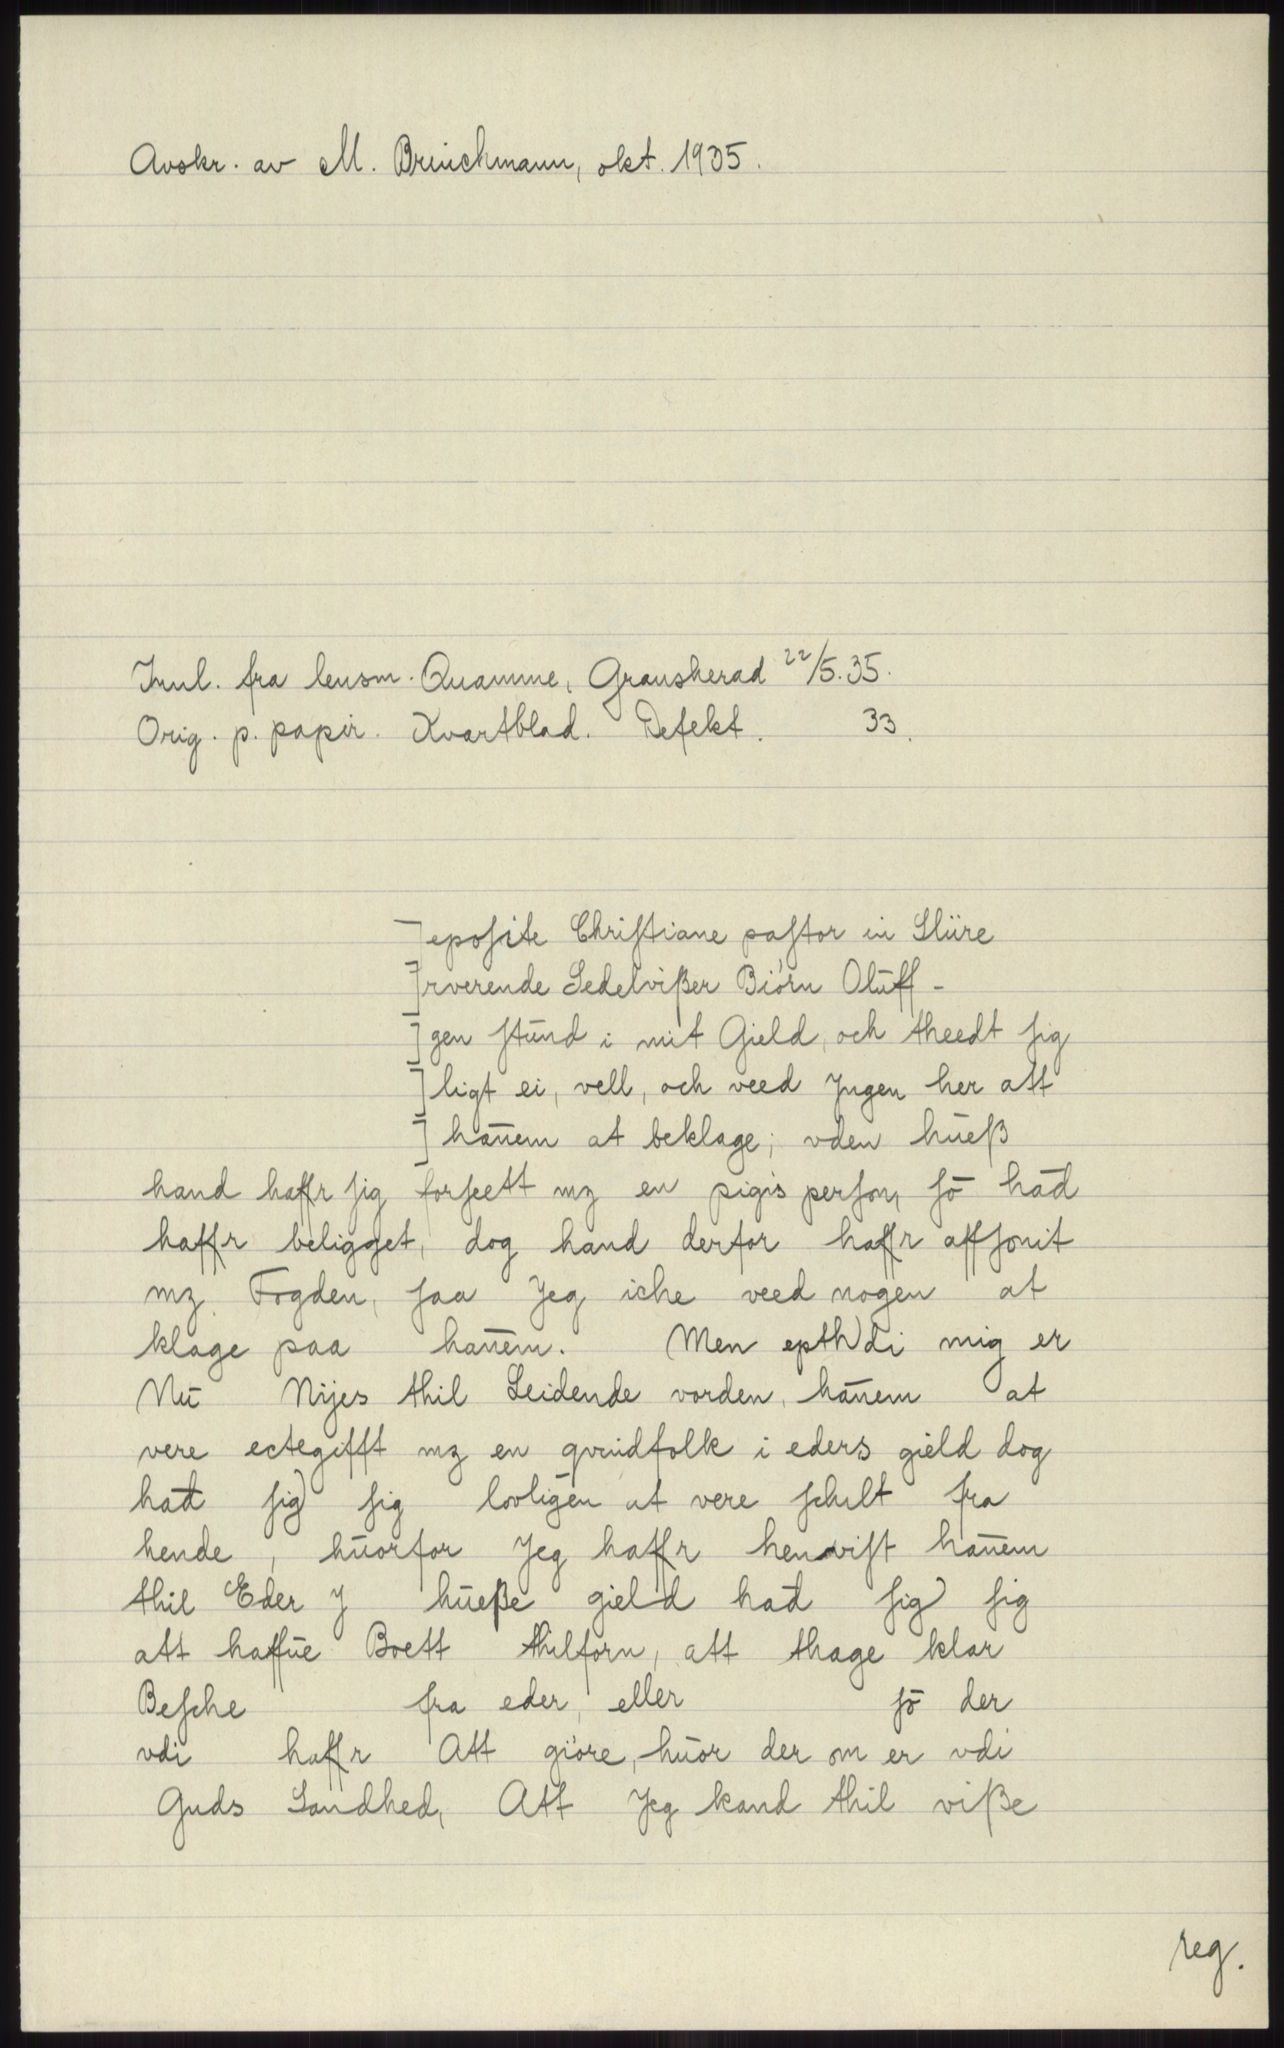 Avskr. av M. Brinchmann, okt. 1935.
Innl. fra lensm. Quamme, Gransherad 22/5.35.
Orig. p. papir. Kvartblad. Defekt. 33.
]eposite Christiane pastor in Slüre
]rverende Sedelvißer Biörn Olūff-
]gen stūnd i mit Gield, och theedt sig
]ligt ei, vell, och veed Jngen her att
] han̄em at beklage; vden hūeß
hand haffr sig forseett mz en pigis person, so̅ had̅
haffr beligget, dog hand derfor haffr affsonit
mz Fogden, saa Jeg iche veed nogen at
klage paa han̄em. Men epth di mig er
Nū Nijes thil Leidende vorden, han̄em at
vere ectegifft mz en qvindfolk i eders gield dog
had̅ sig) sig lovligen at vere schilt fra
hende, hūorfor Jeg haffr henvist han̄em
thil Eder J hūeße gield had̅ sig) sig
att haffūe Boett thilforn, att thage klar
Besche fra eder, eller so̅ der
vdi haffr Att giöre, hūor der om er vdi
Guds Sandhed, Att Jeg kand thil viße
reg.